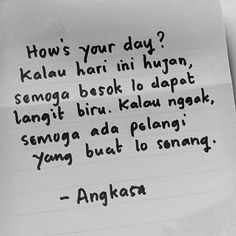 How's your day?
Kalau hari ini hujan,
semoga besok lo dapat
langit biru. Kalau nggak,
semoga ada pelangi
yang buat lo senang.
- Angkasa